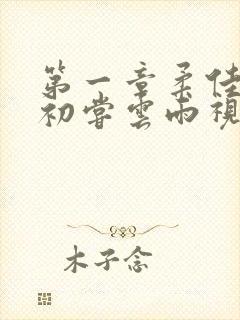 第一章柔佳
初尝雲雨視
木子念